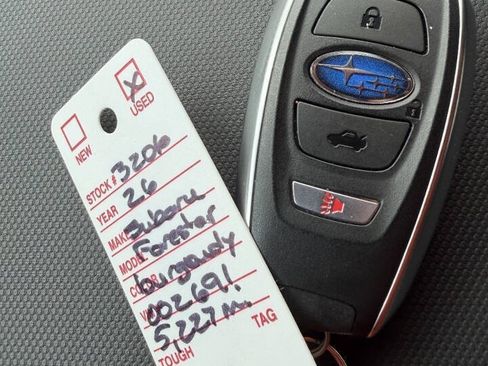 X
USED
NEW
STOCK # 3206
YEAR 26
MAKE Subaru
MODEL Forester
COLOR burgandy
V 002691.
5,227 m.
TOUGH TAG